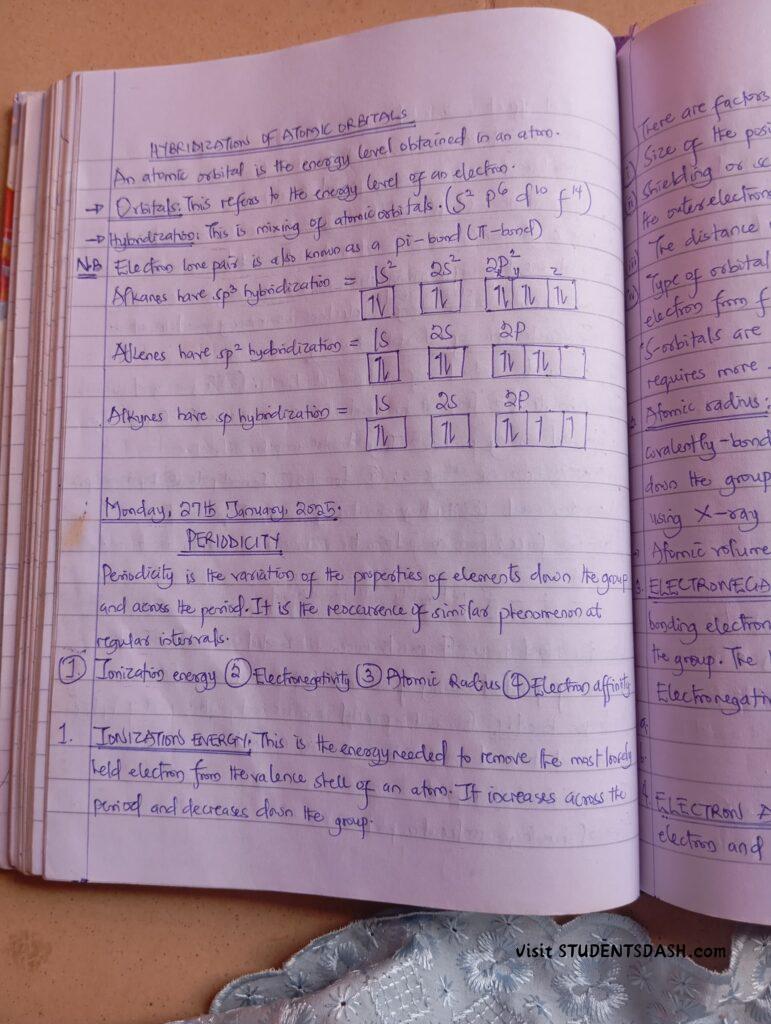 HYBRIDIZATIONS OF ATOMIC ORBITALS
An atomic orbital is the energy level obtained in an atom.
→ Orbitals: This refers to the energy level of an electron.
→ Hybridization: This is mixing of atomic orbitals. (S² P⁶ d¹⁰ f¹⁴)
NB Electron lone pair is also known as a pi-bond (π-bond)
Alkanes have sp³ hybridization = 1S² 2S² 2P²
Alkenes have sp² hybridization = 1S 2S 2P
Alkynes have sp hybridization = 1S 2S 2P
Monday, 27th January, 2025.
PERIODICITY
Periodicity is the variation of the properties of elements down the group
and across the period. It is the reoccurence of similar phenomenon at
regular intervals.
① Ionization energy ② Electronegativity ③ Atomic Radius ④ Electron affinity
1. IONIZATIONS ENERGY: This is the energy needed to remove the most loosely
held electron from the valence shell of an atom. It increases across the
period and decreases down the group.
There are factors
i) Size of the
ii) Shielding or
the outer electron
The distance
Type of orbital
electron from
S-orbitals are
requires more
Atomic radius:
covalently-bond
down the group
using X-ray
Atomic volume
3. ELECTRONEGA
bonding electron
the group. The
Electronegativ
4. ELECTRON A
electron and
visit STUDENTSDASH.com